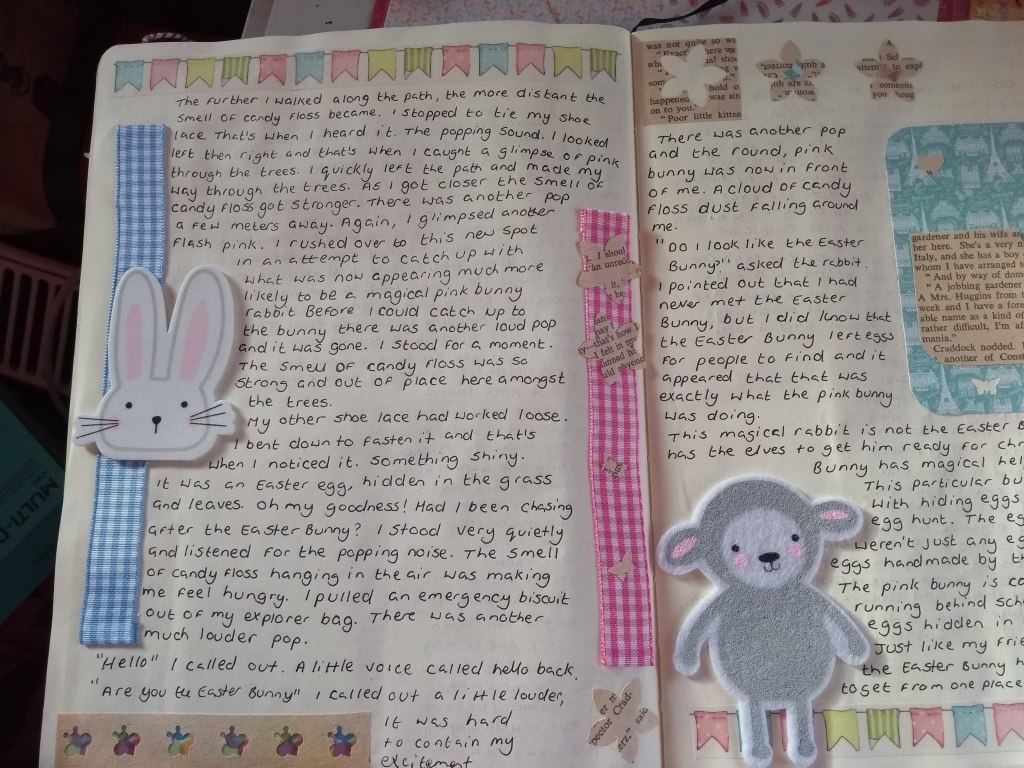 The further I walked along the path, the more distant the
smell of candy floss became. I stopped to tie my shoe
lace. That's when I heard it. The popping sound. I looked
left then right and that's when I caught a glimpse of pink
through the trees. I quickly left the path and made my
way through the trees. As I got closer the smell of
candy floss got stronger. There was another pop
a few meters away. Again, I glimpsed another
flash pink. I rushed over to this new spot
in an attempt to catch up with
what was now appearing much more
likely to be a magical pink bunny
rabbit Before I could catch up to
the bunny there was another loud pop
and it was gone. I stood for a moment.
The smell of candy floss was so
strong and out of place here amongst
the trees.
My other shoe lace had worked loose.
I bent down to fasten it and that's
when I noticed it. Something shiny.
It was an Easter egg, hidden in the grass
and leaves. Oh my goodness! Had I been chasing
after the Easter Bunny? I stood very quietly
and listened for the popping noise. The smell
of candy floss hanging in the air was making
me feel hungry. I pulled an emergency biscuit
out of my explorer bag. There was another
much louder pop.
"Hello" I called out. A little voice called hello back.
"Are you the Easter Bunny" I called out a little louder,
It was hard
to contain my
excitement
was not quite so wa
"Exact
here w
happened
hold o
was sin
on to you."
"Poor little kitten
attem to expl
someone
you thoug
There was another pop
and the round, pink
bunny was now in front
of me. A cloud of candy
floss dust falling around
me.
"Do I look like the Easter
Bunny?" asked the rabbit.
I pointed out that I had
never met the Easter
Bunny, but I did know that
the Easter Bunny left eggs
for people to find and it
appeared that that was
exactly what the pink bunny
was doing.
This magical rabbit is not the Easter B
has the elves to get him ready for chr
Bunny has magical hel
This particular bu
with hiding eggs
egg hunt. The eg
weren't just any eg
eggs handmade by t
The pink bunny is co
running behind sch
eggs hidden in
Just like my frie
the Easter Bunny h
to get from one place
gardener and his wife ar
her here. She's a very n
Italy, and she has a boy
whom I have arranged t
"And by way of dom
"A jobbing gardener
A Mrs. Huggins from th
week and I have a fore
able name as a kind of
rather difficult, I'm af
mania."
Craddock nodded. I
another of Const
I shoul
an unreco
that's how I
I felt in my
er m
pector Crad-
said
MULTI-